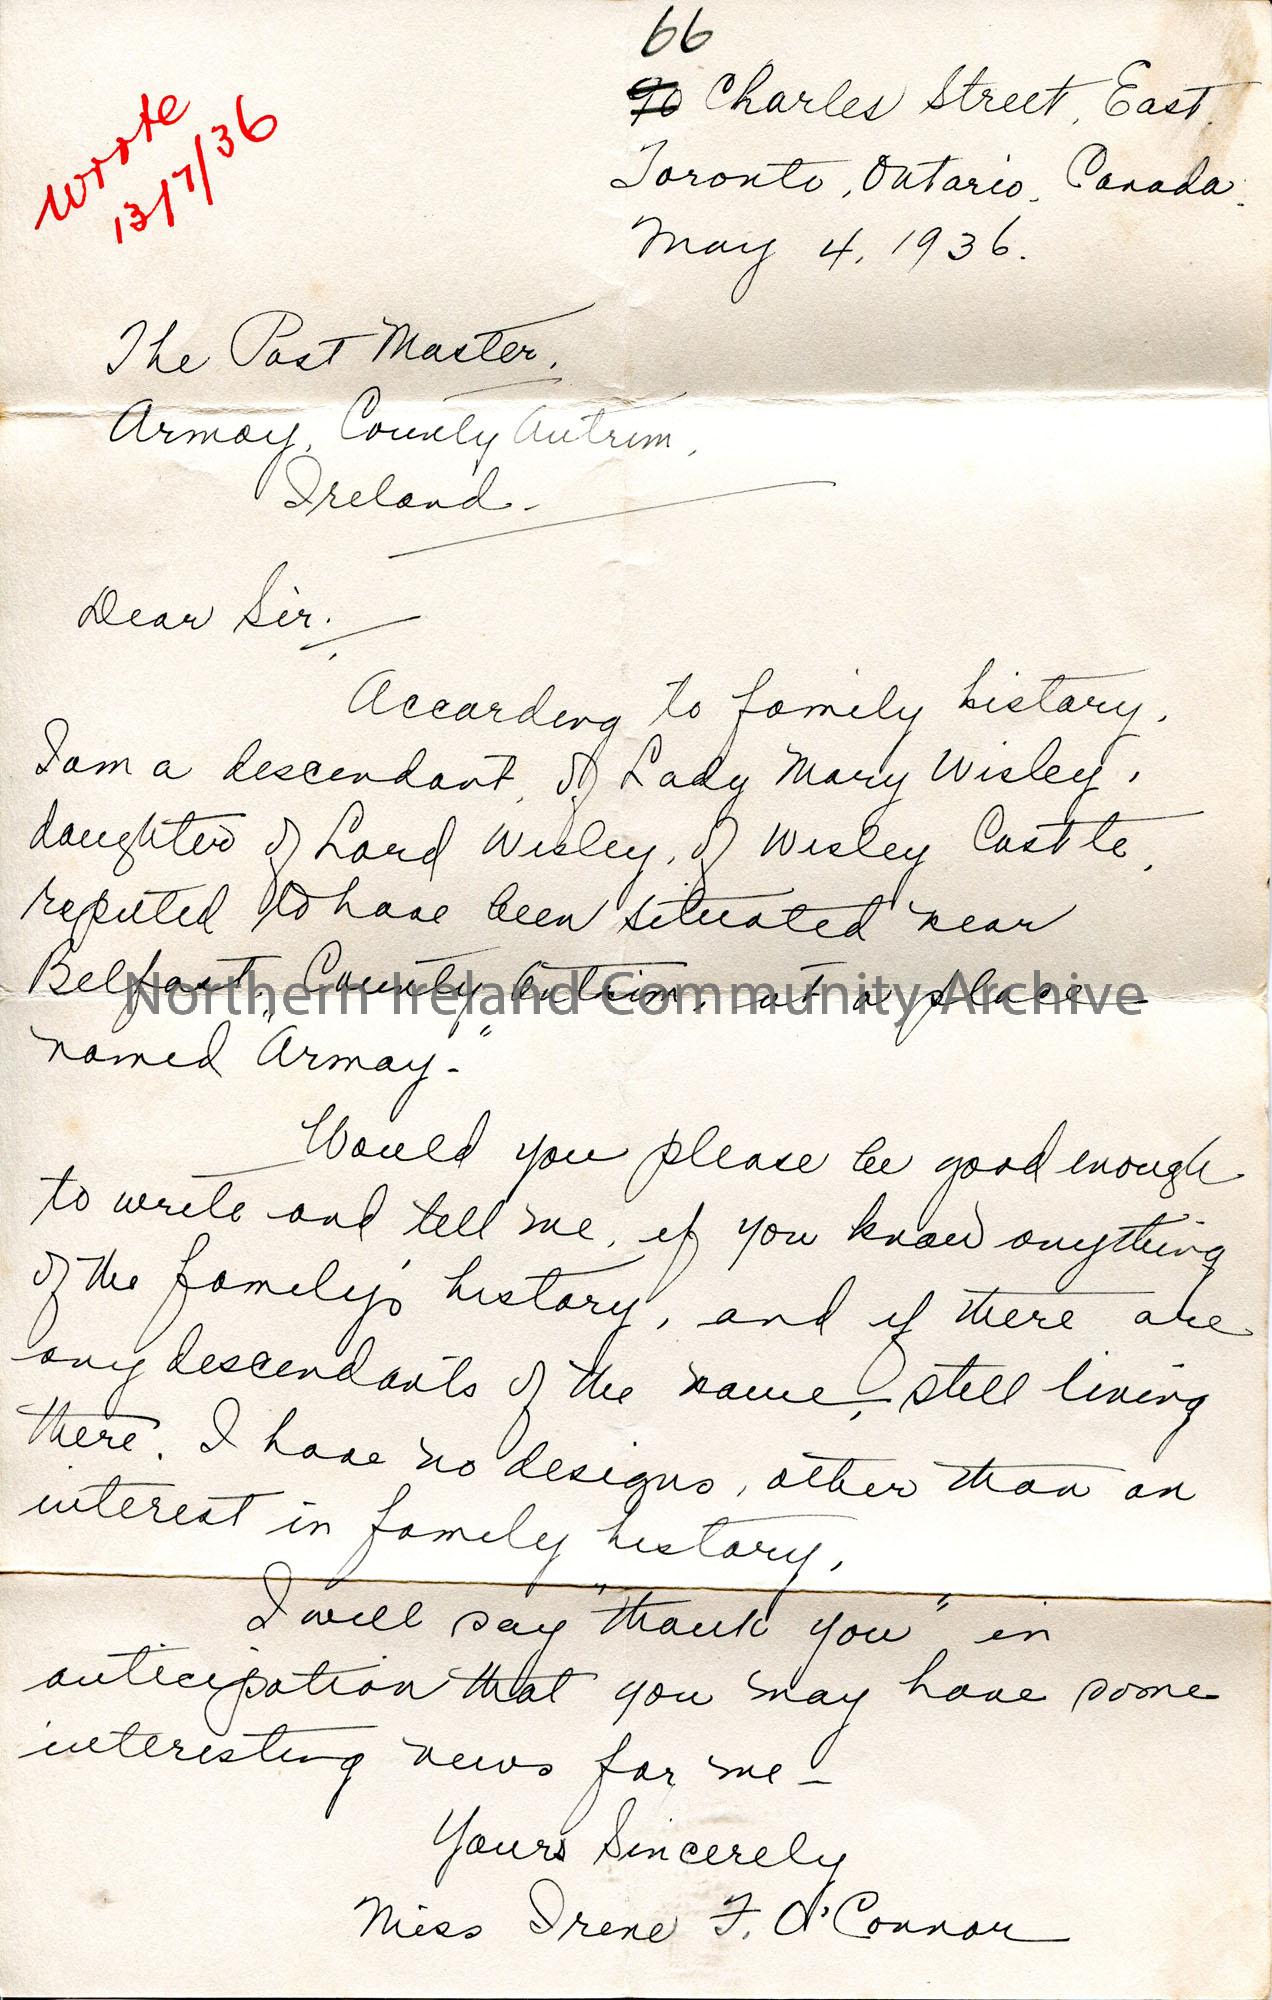 66
90 Charles Street, East.
Toronto, Ontario, Canada.
May 4, 1936.
Wrote
13/7/36
The Post Master,
Armoy, County Antrim,
Ireland.
Dear Sir.
According to family history,
I am a descendant, of Lady Mary Wisley,
daughter of Lord Wisley, of Wisley Castle,
reputed to have been situated near
Belfast, County Antrim, at a place
named "Armoy."
Northern Ireland Community Archive
Would you please be good enough
to write and tell me, if you know anything
of the family's history, and if there are
any descendants of the name, still living
there. I have no designs, other than an
interest in family history.
I will say "thank you" in
anticipation that you may have some
interesting news for me -
Yours Sincerely
Miss Irene F. O'Connor